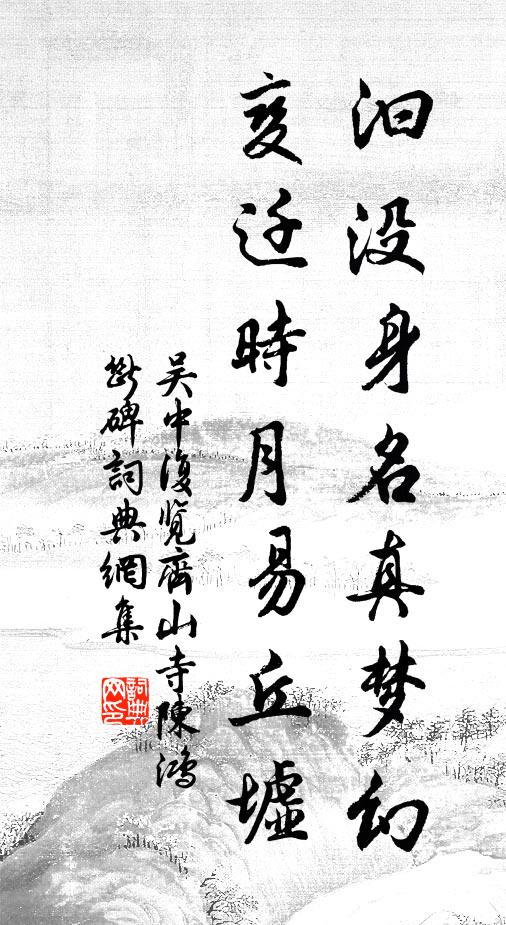 汩没身名真梦幻
变迁時月易丘墟
吴中復览齊山寺陳鴻
断碑詞典網集
詞典网印